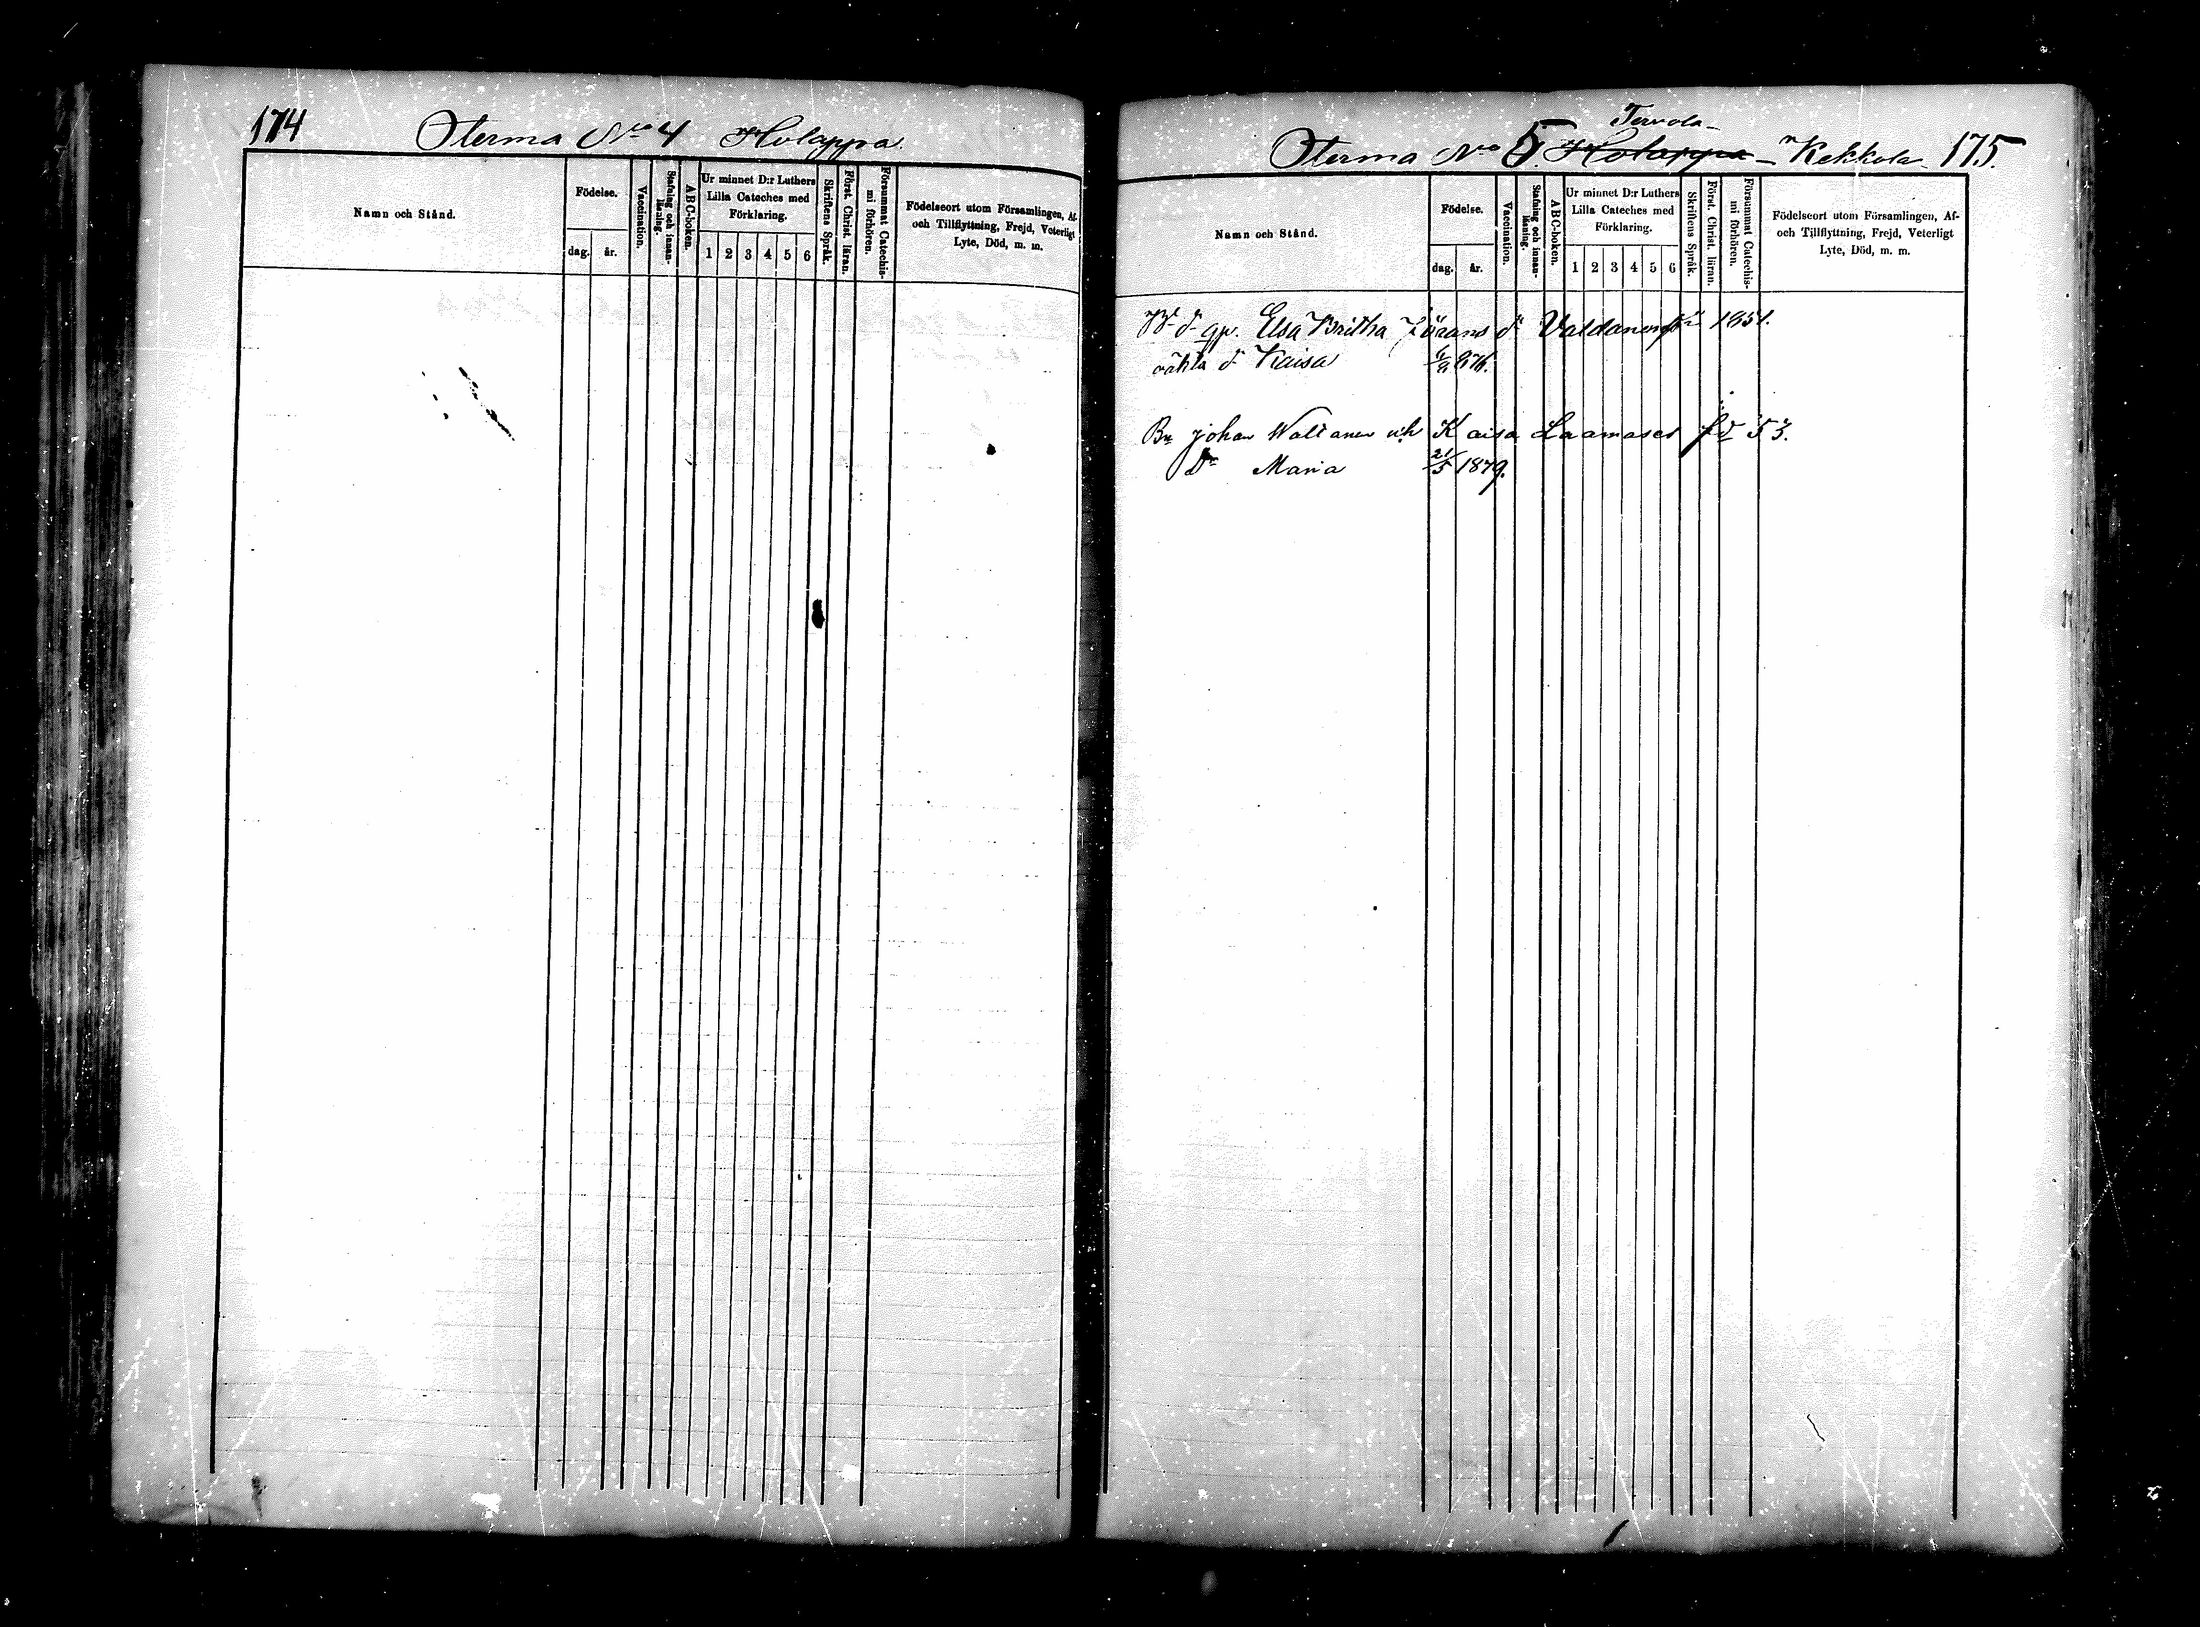 174
Oterma No 4 Holappa
Namn och Stånd.
Födelse.
dag.
år.
Vaccination.
Stafning och innan-
läsning.
ABC-boken.
Ur minnet D:r Luthers
Lilla Cateches med
Förklaring.
1 2 3 4 5 6
Skriftens Språk.
Först. Christ. läran.
Försummat Catechis-
mi förhören.
Födelseort utom Församlingen, Af-
och Tillflyttning, Frejd, Veterligt
Lyte, Död, m. m.
Tervola
Oterma No 5. Holappa - Kekkola 175.
Namn och Stånd.
Födelse.
dag.
år.
Vaccination.
Stafning och innan-
läsning.
ABC-boken.
Ur minnet D:r Luthers
Lilla Cateches med
Förklaring.
1 2 3 4 5 6
Skriftens Språk.
Först. Christ. läran.
Försummat Catechis-
mi förhören.
Födelseort utom Församlingen, Af-
och Tillflyttning, Frejd, Veterligt
Lyte, Död, m. m.
Elsa Britha Görans dr 1851.
oäkta dr Kaisa
Bn Johan h Kaisa f. 53.
Dr Maria 21/5 1879.